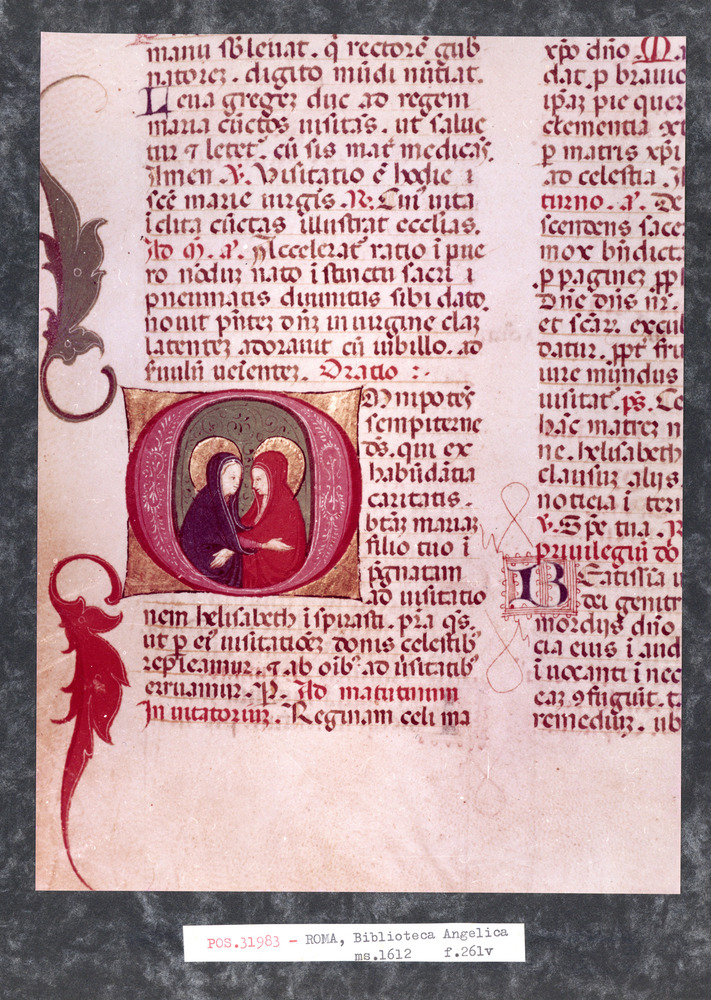 manu sb̄leuat . q̄ rectorē gub
natorez . digito mūdi nūtiat .
Lena gregez duc ad regem
maria cūctos uisitās . ut salue
tur ⁊ letet᷑ . cū sis mat᷑ medicaȝ .
Amen . V̄. Visitatio ē hodie i
scē marie uirgīs . R̄. Cui᷒ uita
īclita cūctas illustrat eccl̄ias .
Ad M̄. a᷑. Accelerat᷑ ratio ī pue
ro nōduȝ nato īstinctu sacri i
pneumatis diuinitus sibi dato .
nouit pn̄tez dn̄z in uirgine claȝ
latentez adorauit cū iubillo . ad
famulū uenientez . Oratio :
Omnipotēs
sempiterne
ds̄ . qui ex
habūdātia
caritatis .
btāȝ mariaȝ
filio tuo ī
p̄gnatam
ad uisitatio
nem helisabeth īspirasti . p̄ra q̄s .
ut p ei᷒ uisitatiōez donis celestib᷒
repleamur . ⁊ ab oīb᷒ ad ūsitatib᷒
eruamur . P. Ad matutinum
Inuitatoriuȝ . Reginam celi ma
xp̄o dn̄o . Ma
dat . p brauio
ip̄aȝ pie quer
clementia ext
p matris xp̄i
ad celestia .
turno . a᷑. De
scendens sace
mox bn̄dict
. p paginez pp
Dn̄e dn̄s nr̄ .
et scāȝ . excul
datur . ppt᷑ fru
uire mundus
uisitat᷑ . ps̄. Ce
hāc matrez n
ne . helisabeth
clausuȝ aluȝ .
noticia ī tern
V̄. Spē tua . R̄
priuilegiū do
Beatissīa u
dei genitr
mordijs dn̄o
cia eius ī aud
ī uocanti ī nec
eaȝ ꝯfugiut . t
remediuȝ . ub
POS.31983 - ROMA, Biblioteca Angelica
ms.1612 f.261v